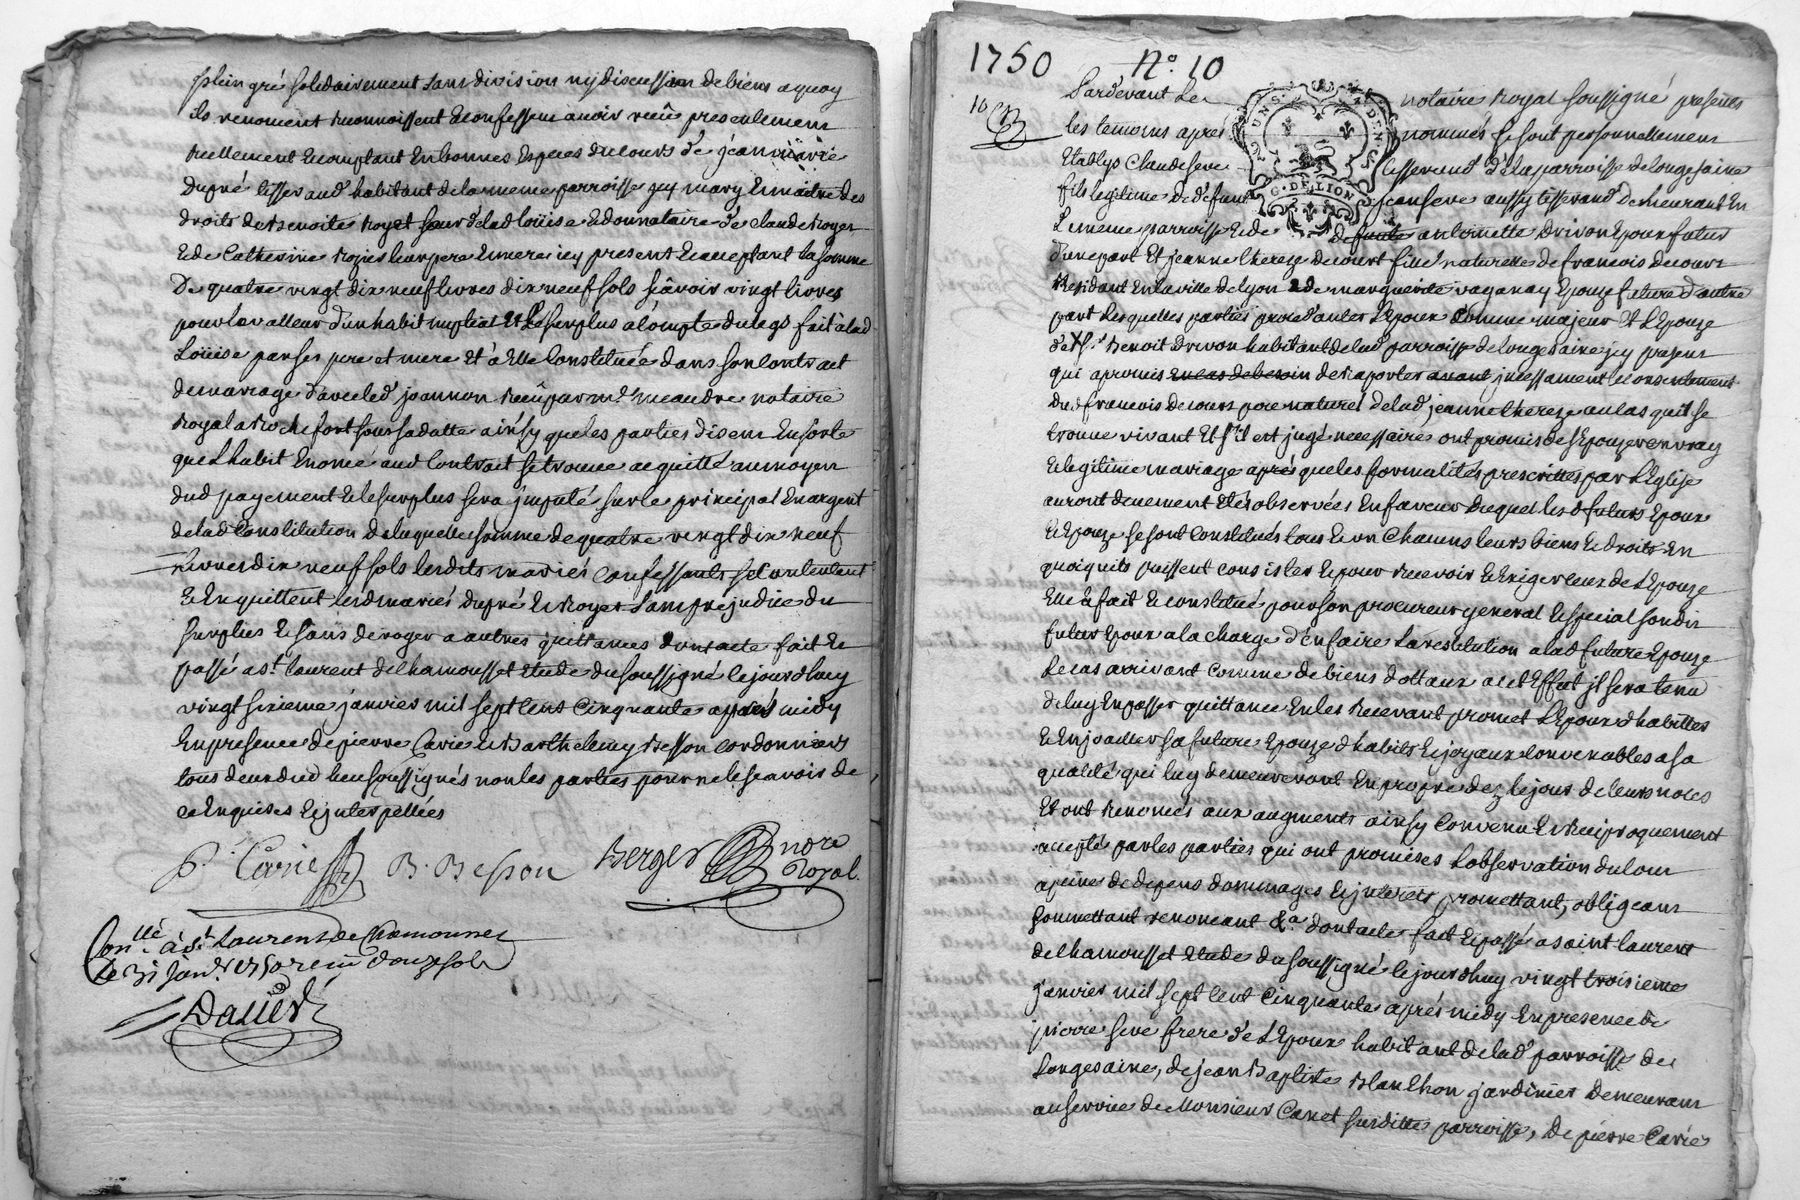 plein gré solidairement sans division ny discussion de biens a quoy
ils renoncent reconnoissent & confessent avoir receu presentement
reellement & comptant en bonnes especes du cours de jean marie
Dupré tisserand habitant de la meme parroisse jcy mary & maitre des
droits de Benoite Royet sœur de lad Loüise & donnataire de Claude Royer
& de Catherine leurs pere & mere jcy present & acceptant la somme
De quatre vingt dix neuf livres dix neuf sols sçavoir vingt livres
pour la valleur d'un habit nuptial et le surplus a compte du legs fait a lad
Loüise par ses pere et mere et à elle Constituée dans son Contract
de mariage d'avec led joannon receu par me meandre notaire
Royal a Rochefort sous sa datte ainsy que les parties disent en sorte
que l habit enoncé aud Contrait se trouve acquitté au moyen
dud payement & le surplus sera jmputé sur le principal en argent
de lad Constitution de laquelle somme de quatre vingt dix neuf
livres dix neuf sols lesdits mariés confessants se contentent
& en quittent lesd mariés dupré & Royet sans prejudice du
surplus & sans deroger a autres quittances dont acte fait &
passé a st Laurent de Chamousset etude du soussigné le jourdhuy
vingt sixieme janvier mil sept cens cinquante apprés midy
en presence de pierre Carie & Barthelemy Besson cordonniers
tous deux dud lieu soussignés non les parties pour ne le sçavoir de
ce enquises & jnterpellées
P. Carie B. Besson Berger nore
Royal
Conllé à St Laurent de Chamousset
Le 31 Janvr 1750 receu douze sols
David
1750 No. 10
10
Pardevant le notaire Royal soussigné presents
les temoins apres nommés se sont personnellement
Etablys Claude seve tisserand de la parroisse de longesaine
fils legitime de defunt jean seve aussy tisserand demeurant en
La meme parroisse & de defunte antoinette Drivon epoux futur
d'une part Et jeanne therese decourt fille naturelle de francois decourt
Residant en la ville de Lyon & de marguerite vaganay Epouze future d'autre
part Lesquelles parties procedantes L'Epoux comme majeur et L'Epouze
de Benoit Drivon habitant de lad parroisse de longesaine jcy present
qui a promis en cas de besoin de raporter avant jncessament le consentement
dud francois decourt pere naturel de lad jeanne therese au cas qu'il se
trouve vivant et s'il est jugé necessaire ont promis de s'Epouzer en vray
& legitime mariage après que les formalités prescrittes par L'Eglise
auront duement eté observées En faveur duquel lesd futurs Epoux
& Epouze se sont Constitués tous & un Chacuns leurs biens & droits en
quoi qu'ils puissent consister & pour recevoir & Exiger ceux de L'Epouze
Elle a fait & constitué pour son procureur general & special sondit
futur Epoux a la charge d'en faire la restitution a lad future Epouze
Le cas arrivant comme de biens dottaux a cet Effect jl sera tenu
de luy en passer quittance en les recevant promet L'Epoux d habiller
& Enjoailler sa future Epouze d habits & joyaux convenables a sa
qualité qui luy demeureront en propre dez le jour de leurs noces
Et ont renoncés aux augments ainsy convenu & reciproquement
accepté par les parties qui ont promises L'observation du tout
a peine de depens dommages & jnterets promettant, obligeant
soumettant renoncant &a dont acte fait & passé a saint laurent
de Chamousset etude du soussigné le jourdhuy vingt troisieme
janvier mil sept cent Cinquante aprés midy En presence de
pierre seve frere de L'Epoux habitant de lad parroisse de
Longesaine, de jean Baptiste Blanchon jardinier demeurant
au service de Monsieur Caret susditte parroisse, De pierre Carie